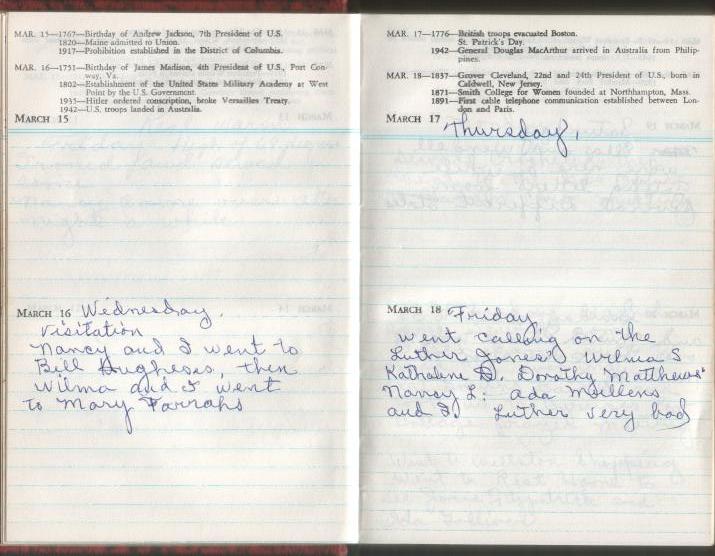 MAR. 15—1767—Birthday of Andrew Jackson, 7th President of U.S.
1820—Maine admitted to Union.
1917—Prohibition established in the District of Columbia.
MAR. 16—1751—Birthday of James Madison, 4th President of U.S., Port Con-
way, Va.
1802—Establishment of the United States Military Academy at West
Point by the U.S. Government.
1935—Hitler ordered conscription, broke Versailles Treaty.
1942—U.S. troops landed in Australia.
MARCH 15
MARCH 16 Wednesday.
Visitation
Nancy and I went to
Bill Hugheses, then
Wilma and I went
to Mary Farrahs
MAR. 17—1776—British troops evacuated Boston.
St. Patrick's Day.
1942—General Douglas MacArthur arrived in Australia from Philip-
pines.
MAR. 18—1837—Grover Cleveland, 22nd and 24th President of U.S., born in
Caldwell, New Jersey.
1871—Smith College for Women founded at Northampton, Mass.
1891—First cable telephone communication established between Lon-
don and Paris.
MARCH 17
Thursday,
MARCH 18 Friday
went calling on the
Luther Jones' Wilma S
Kathaline D. Dorothy Matthews'
Nancy L: Ada
and I. Luther very bad